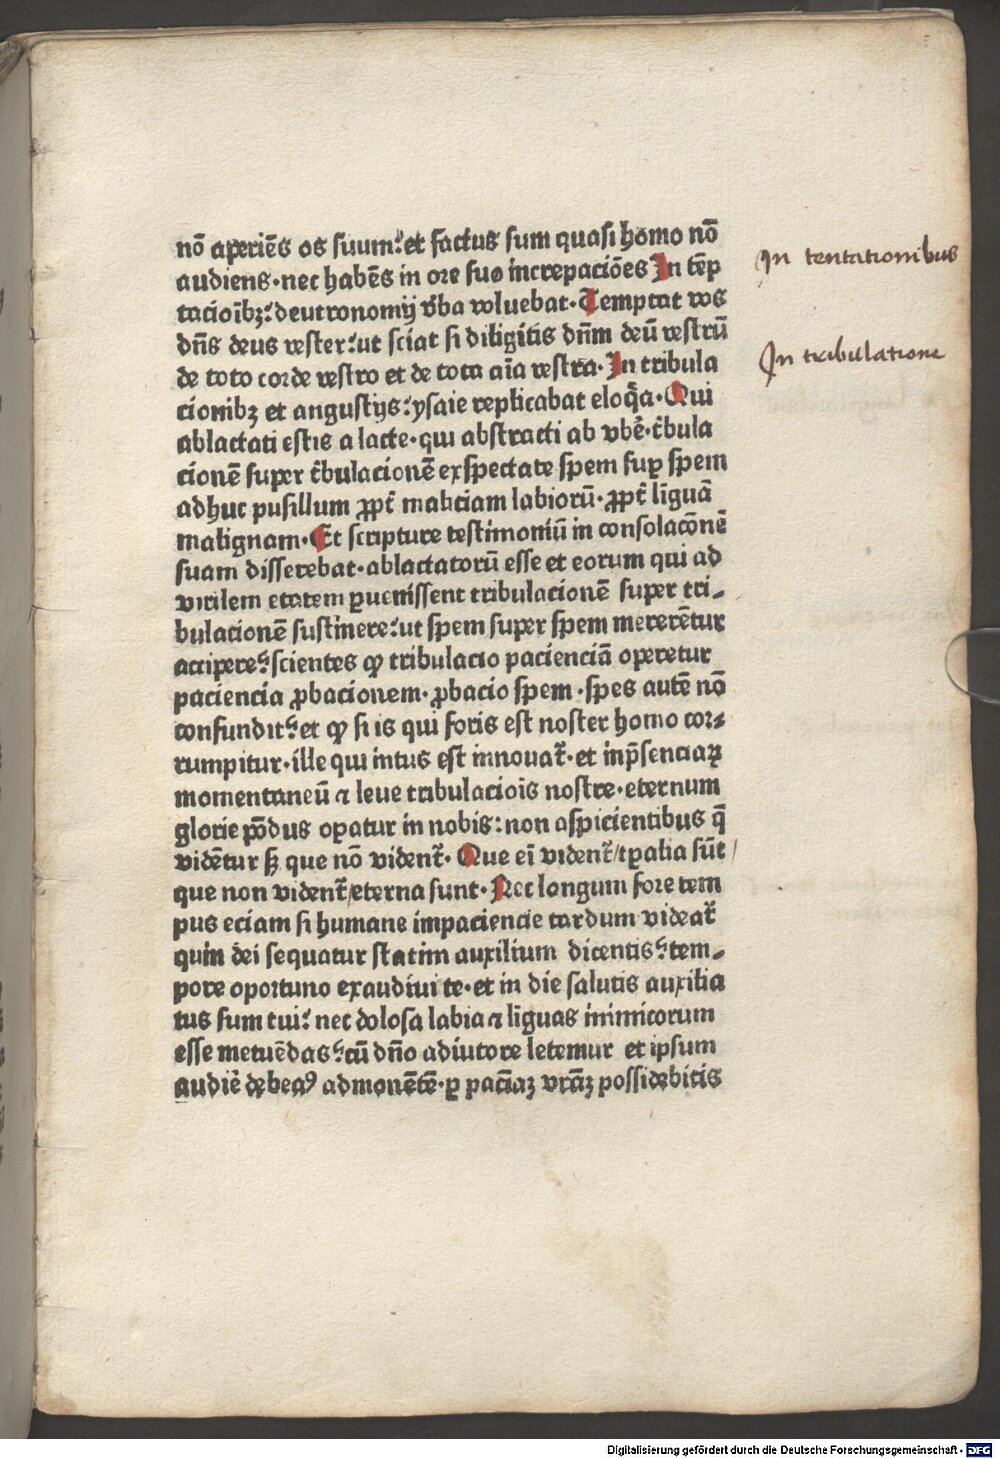 nō aperiēs os suum: et factus sum quasi homo nō
audiens·nec habēs in ore suo increpaciōes In tēp
tacioībꝫ: deutronomij v̄ba voluebat·Temptat vos
dn̄s deus vester: ut sciat si diligitis dn̄m deū vestrū
de toto corde vestro et de tota aīa vestra·In tribula
cionibꝫ et angustijs: ysaie replicabat eloq̄a·Qui
ablactati estis a lacte·qui abstracti ab vbē·t̄bula
cionē super t̄bulacionē exspectate spem suꝑ spem
adhuc pusillum ꝓpt̄ maliciam labiorū·ꝓpt̄ līguā
malignam·Et scripture testimoniū in consolacōnē
suam disserebat·ablactatorū esse et eorum qui ad
virilem etatem ꝑuenissent tribulacionē super tri-
bulacionē sustinere: ut spem super spem mererētur
accipere: scientes ꝙ tribulacio pacienciā operetur
paciencia ꝓbacionem·ꝓbacio spem·spes autē nō
confundit: et ꝙ si is qui foris est noster homo cor-
rumpitur·ille qui intus est innouat̄·et in p̄senciaꝝ
momentaneū ⁊ leue tribulaciois nostre·eternum
glorie pōdus oꝑatur in nobis: non aspicientibus q̄
vidētur sꝫ que nō vident̄·Que eī vident̄/tꝑalia sūt/
que non vident̄/eterna sunt·Nec longum fore tem
pus eciam si humane impaciencie tardum videat̄
quin dei sequatur statim auxilium dicentis: tem-
pore oportuno exaudiui te·et in die salutis auxilia
tus sum tui: nec dolosa labia ⁊ līguas inimicorum
esse metuēdas: cū dn̄o adiutore letemur et ipsum
audiē debeaꝰ admonētē·ꝑ pacīaꝫ vrāꝫ possidebitis
In tentationibus
In tribulatione
Digitalisierung gefördert durch die Deutsche Forschungsgemeinschaft - DFG